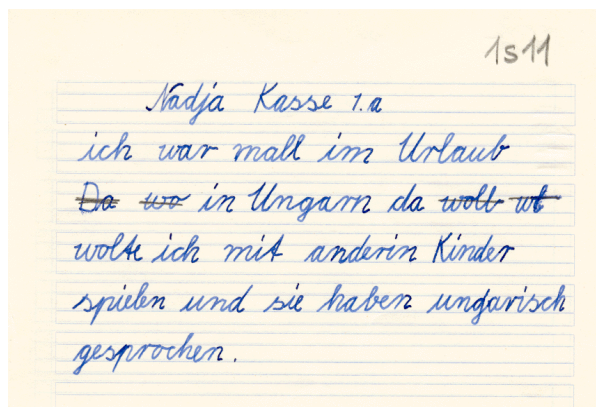 1s11
Nadja Kasse 1.a
ich war mall im Urlaub
Da wo in Ungarn da woll wt
wolte ich mit anderin Kinder
spielen und sie haben ungarisch
gesprochen.